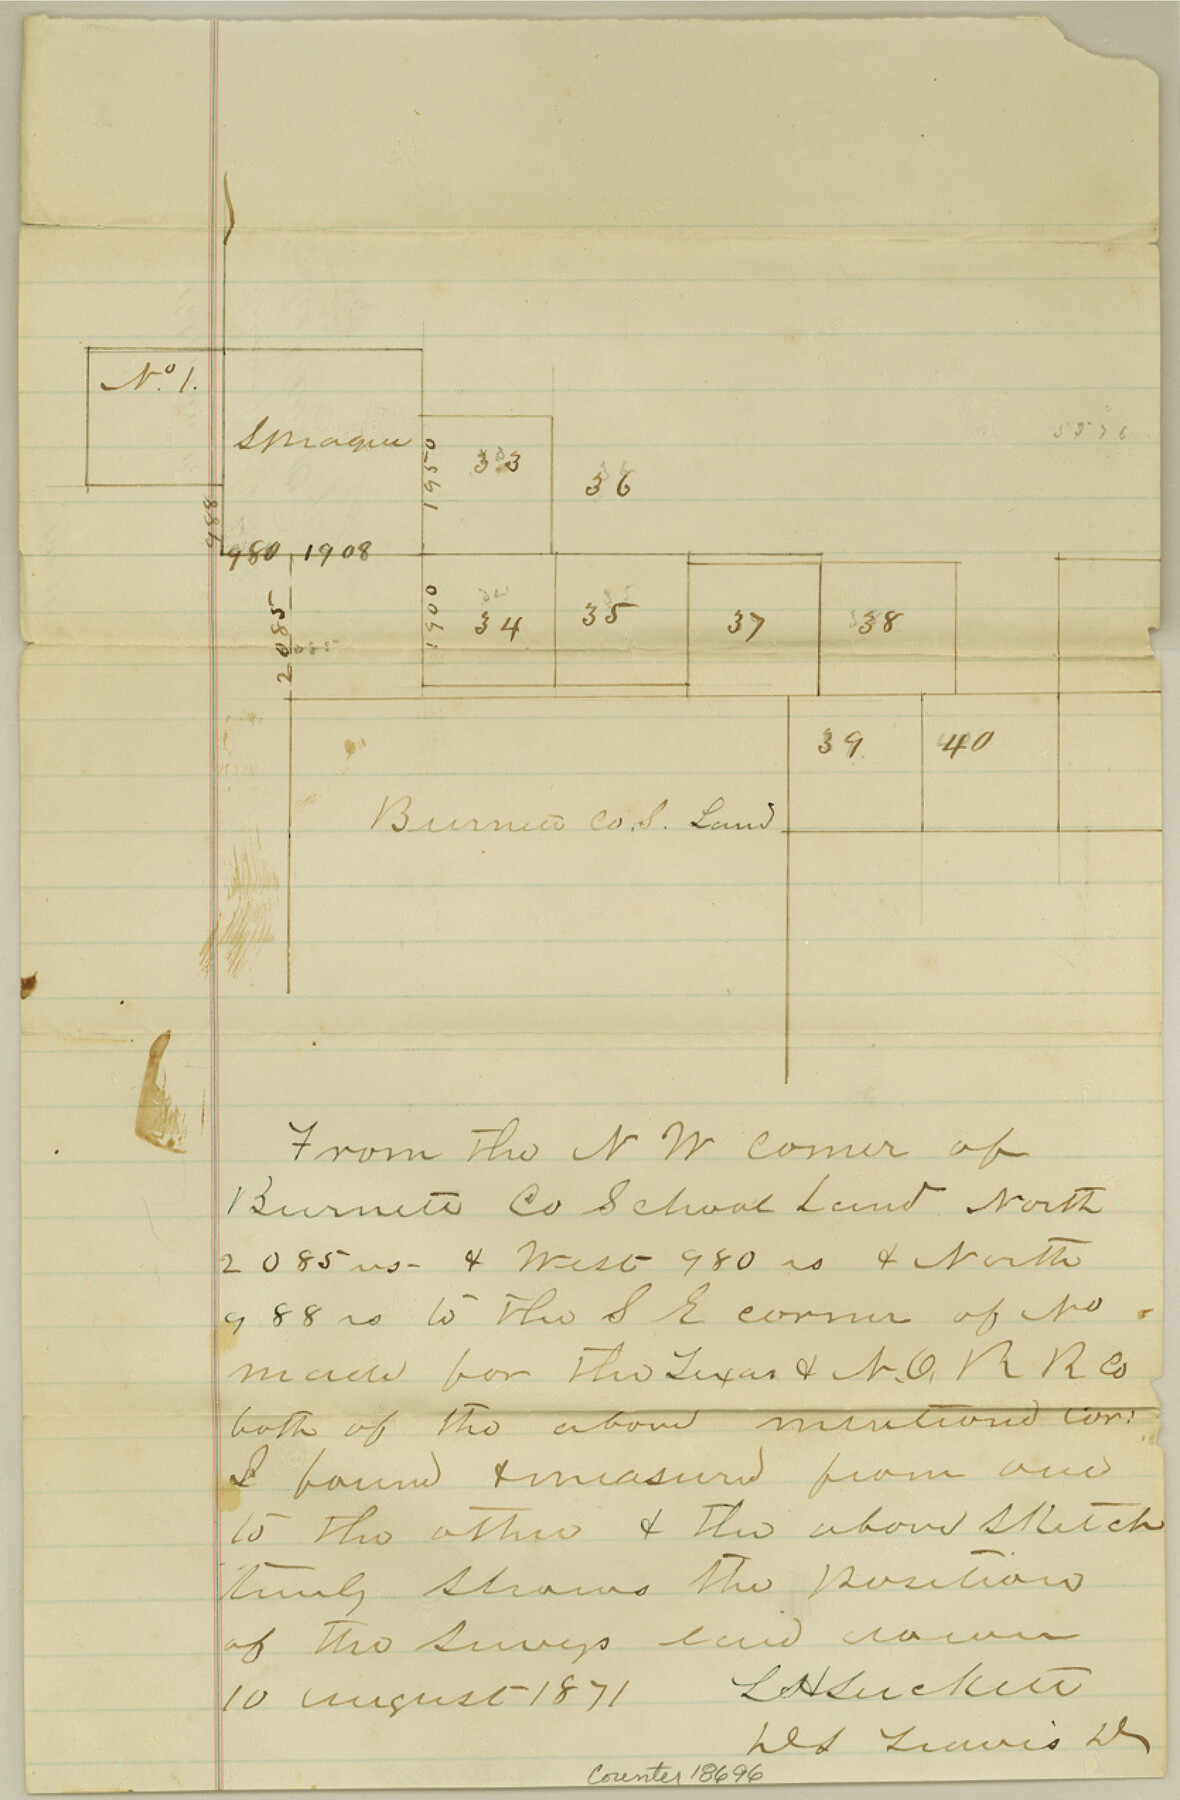 No. 1.
Sprague
1950
33
36
5576
988
980, 1908
2085
1900
34
35
37
38
39
40
Burnett Co. S. Land
From the N W Corner of
Burnett Co School Land North
2085 vs & West 980 vs & North
988 vs to the S E corner of No
made for the Texas & N. O. R R Co
both of the above mentioned cor:
I found & measured from one
to the other & the above sketch
truly shows the position
of the surveys laid down
10 august 1871 L H Luckett
D S Travis D
Counter 18696